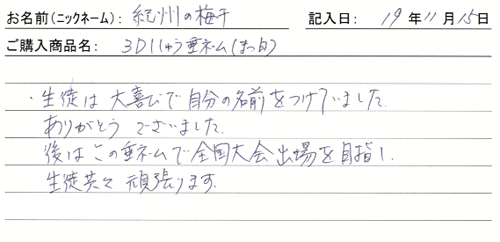 お名前(ニックネーム): 紀州の梅干 記入日: 19年11月15日
ご購入商品名: 3Dししゅう垂ネーム(まっ白)
・生徒は大喜びで自分の名前をつけていました。
ありがとうございました。
後はこの垂ネームで全国大会出場を目指し、
生徒共々頑張ります。